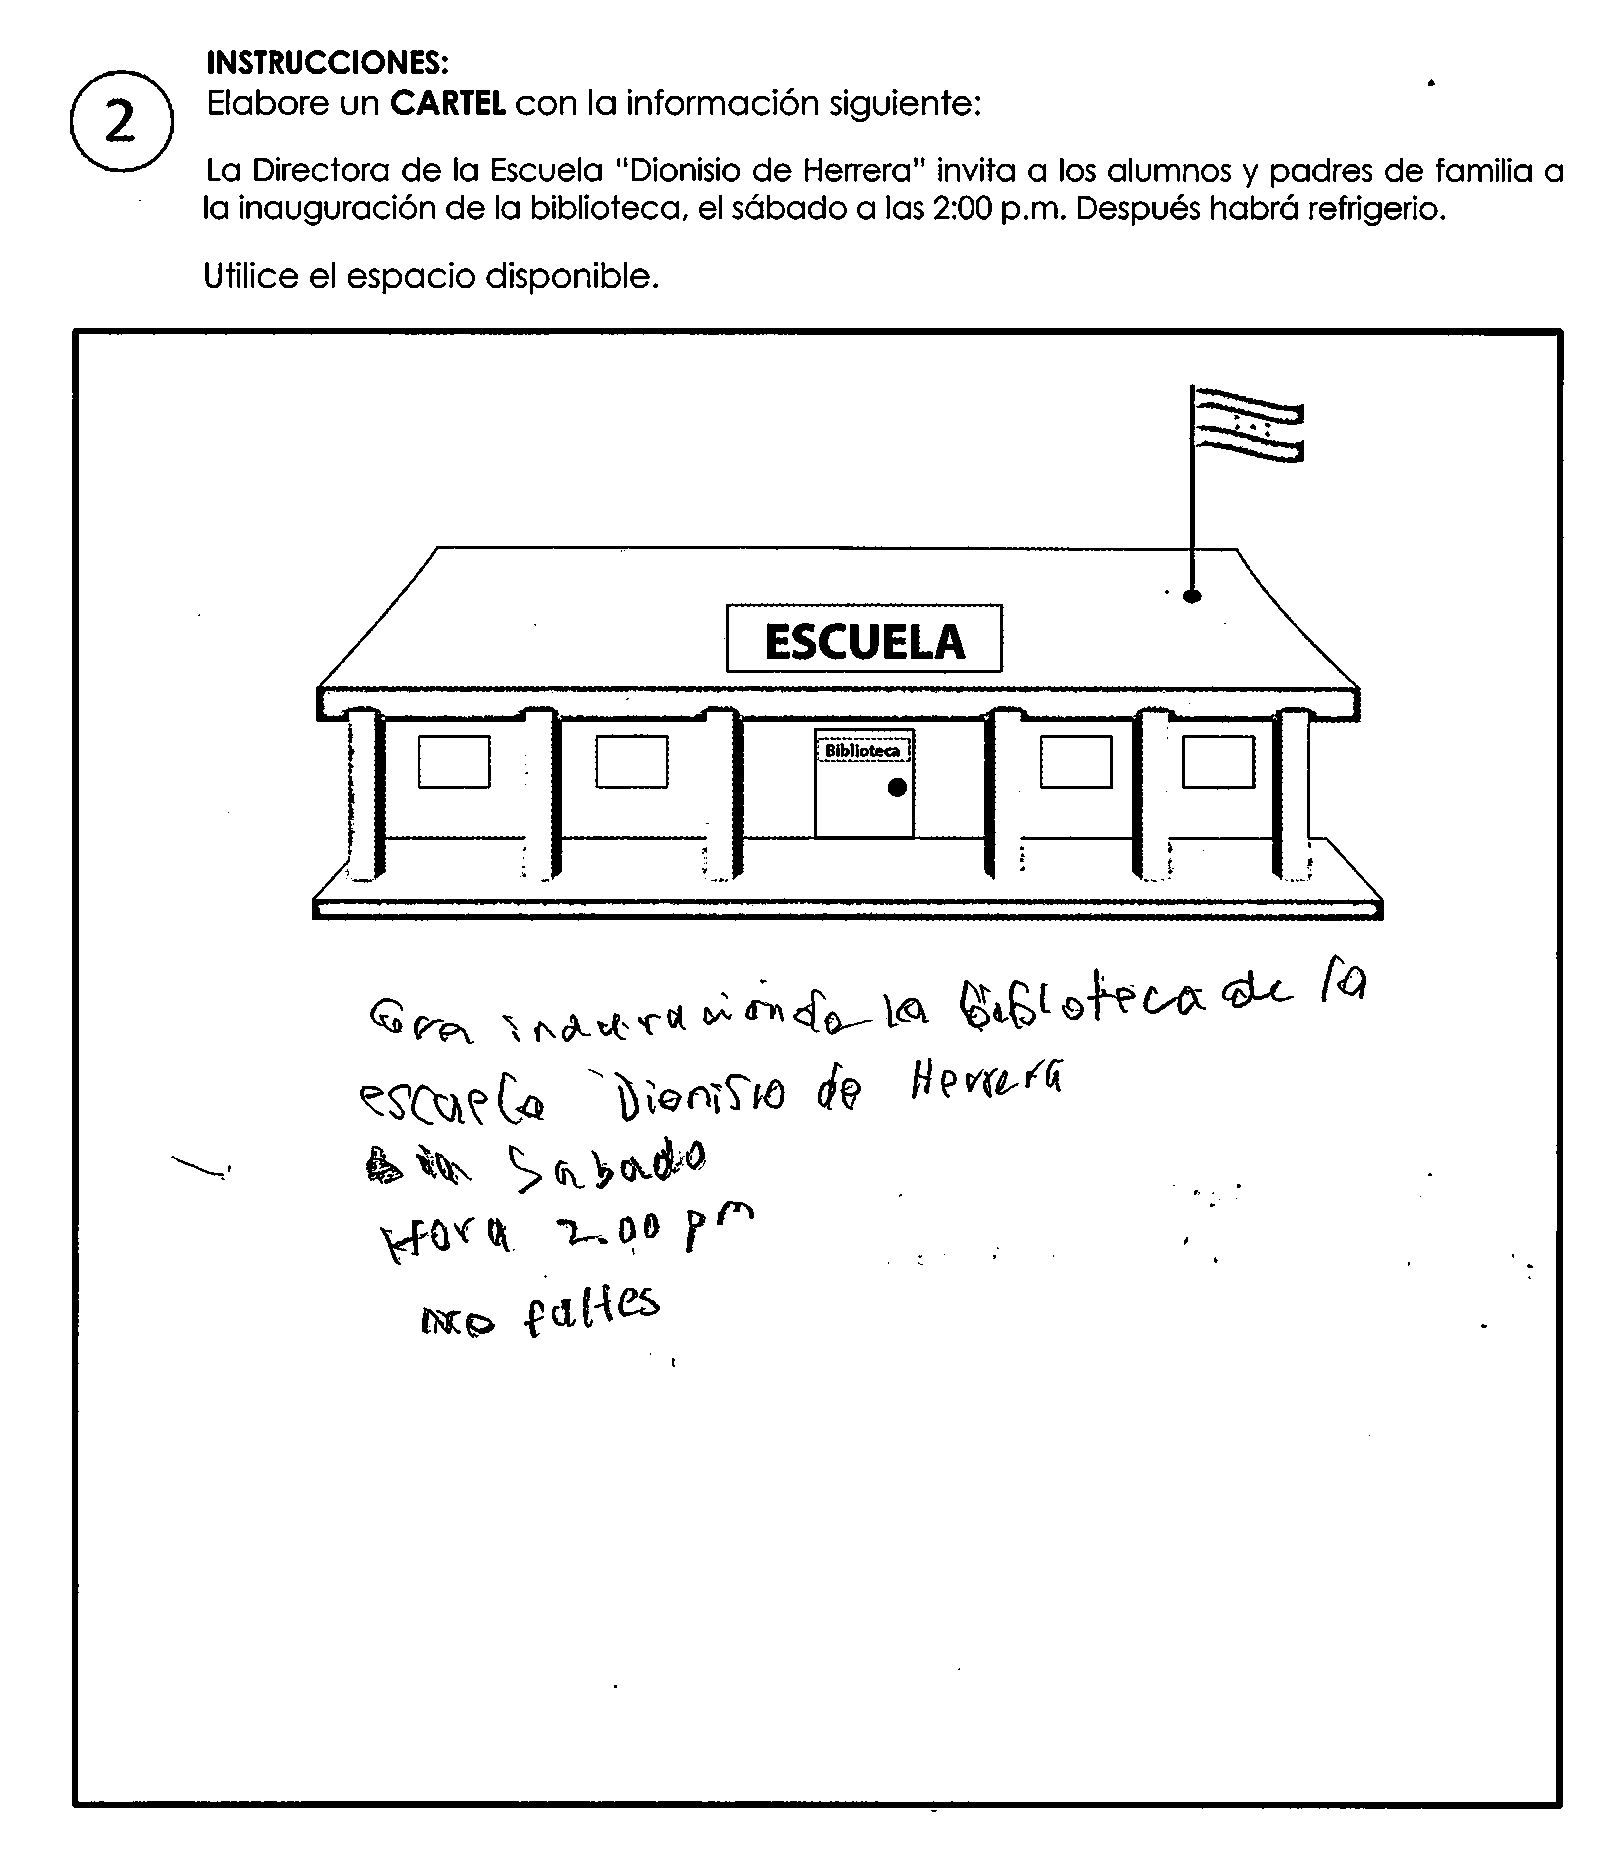 INSTRUCCIONES:
2
Elabore un CARTEL con la información siguiente:
La Directora de la Escuela "Dionisio de Herrera" invita a los alumnos y padres de familia a
la inauguración de la biblioteca, el sábado a las 2:00 p.m. Después habrá refrigerio.
Utilice el espacio disponible.
ESCUELA
Biblioteca
Gra la Biblioteca de la
escuela Dionisio de Herrera
Sabado
Hora 2.00 pm
no faltes